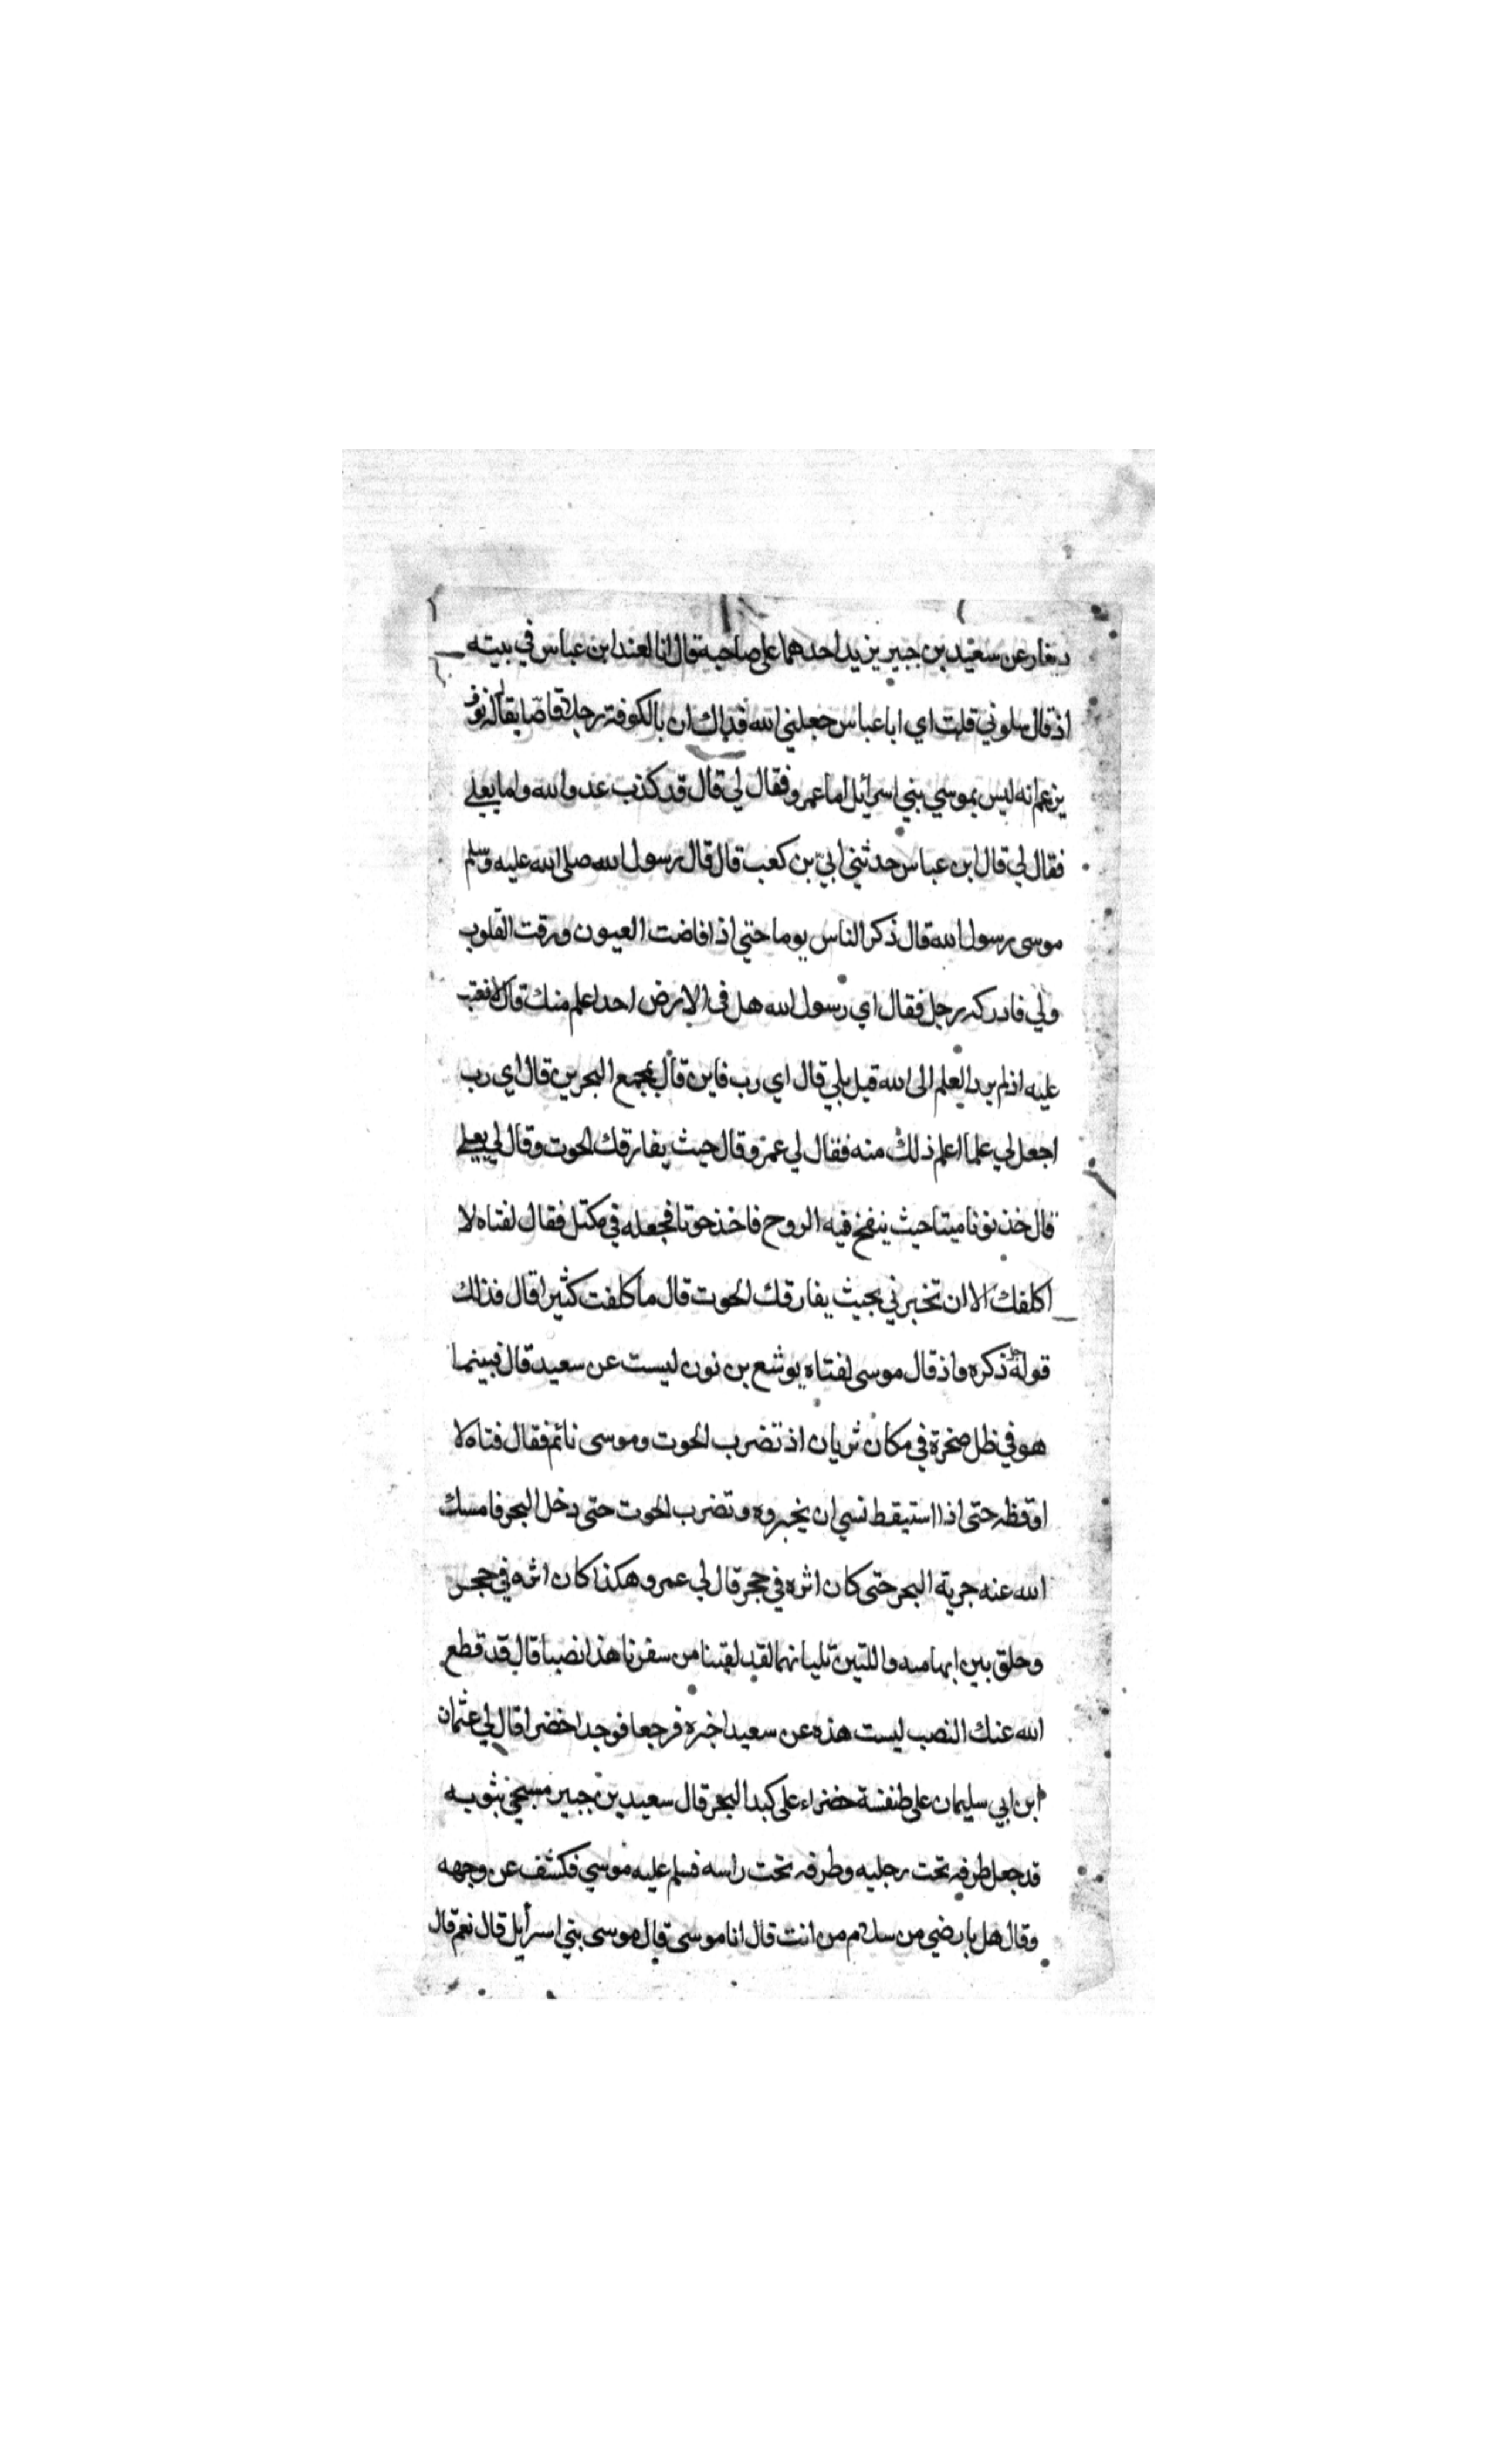 دينار عن سعيد بن جبير يزيد احدهما على صاحبه قال انا لعند ابن عباس في بيته
اذ قال سلوني قلت اي ابا عباس جعلني الله فداك ان بالكوفة رجلا قاصا يقال له نوف
يزعم انه ليس بموسي بني اسرائل اما عمرو فقال لي قال قد كذب عدو الله واما يعلي
فقال لي قال ابن عباس حدثني ابيّ بن كعب قال قال رسول الله صلى الله عليه وسلم
موسى رسول الله قال ذكر الناس يوما حتي اذا فاضت العيون ورقت القلوب
ولي فادركه رجل فقال اي رسول الله هل في الارض احدا علم منك قال لا فعتب
عليه اذ لم يرد العلم الى الله قيل بلي قال اي رب فاين قال بمجمع البحرين قال اي رب
اجعل لي علما اعلم ذلك منه فقال لي عمرو قال حيث يفارقك الحوت وقال لي يعلي
قال خذ نونا ميتا حيث ينفخ فيه الروح فاخذ حوتا فجعله في مكتل فقال لفتاه لا
اكلفك الا ان تخبرني بحيث يفارقك الحوت قال ما كلفت كثيرا قال فذلك
قوله ذكره واذ قال موسى لفتاه يوشع بن نون ليست عن سعيد قال فبينما
هو في ظل صخرة في مكان ثريان اذ تضرب الحوت وموسى نائم فقال فتاه لا
اوقظه حتى اذا استيقظ نسي ان يخبروه وتضرب الحوت حتى دخل البحر فامسك
الله عنه جرية البحر حتى كان اثره في حجر قال لي عمرو هكذا كان اثره في حجر
وحلق بين ابهاميه واللتين تليانهما لقد لقينا من سفرنا هذا نصبا قال قد قطع
الله عنك النصب ليست هذه عن سعيد اخبره فرجعا فوجدا خضرا قال لي عثمان
ابن ابي سليمان على طنفسة خضراء على كبد البحر قال سعيد بن جبير مسجى بثوبه
قد جعل طرفه تحت رجليه وطرفه تحت راسه فسلم عليه موسي فكشف عن وجهه
وقال هل بارضي من سلام من انت قال انا موسى قال موسى بني اسرايل قال نعم قال